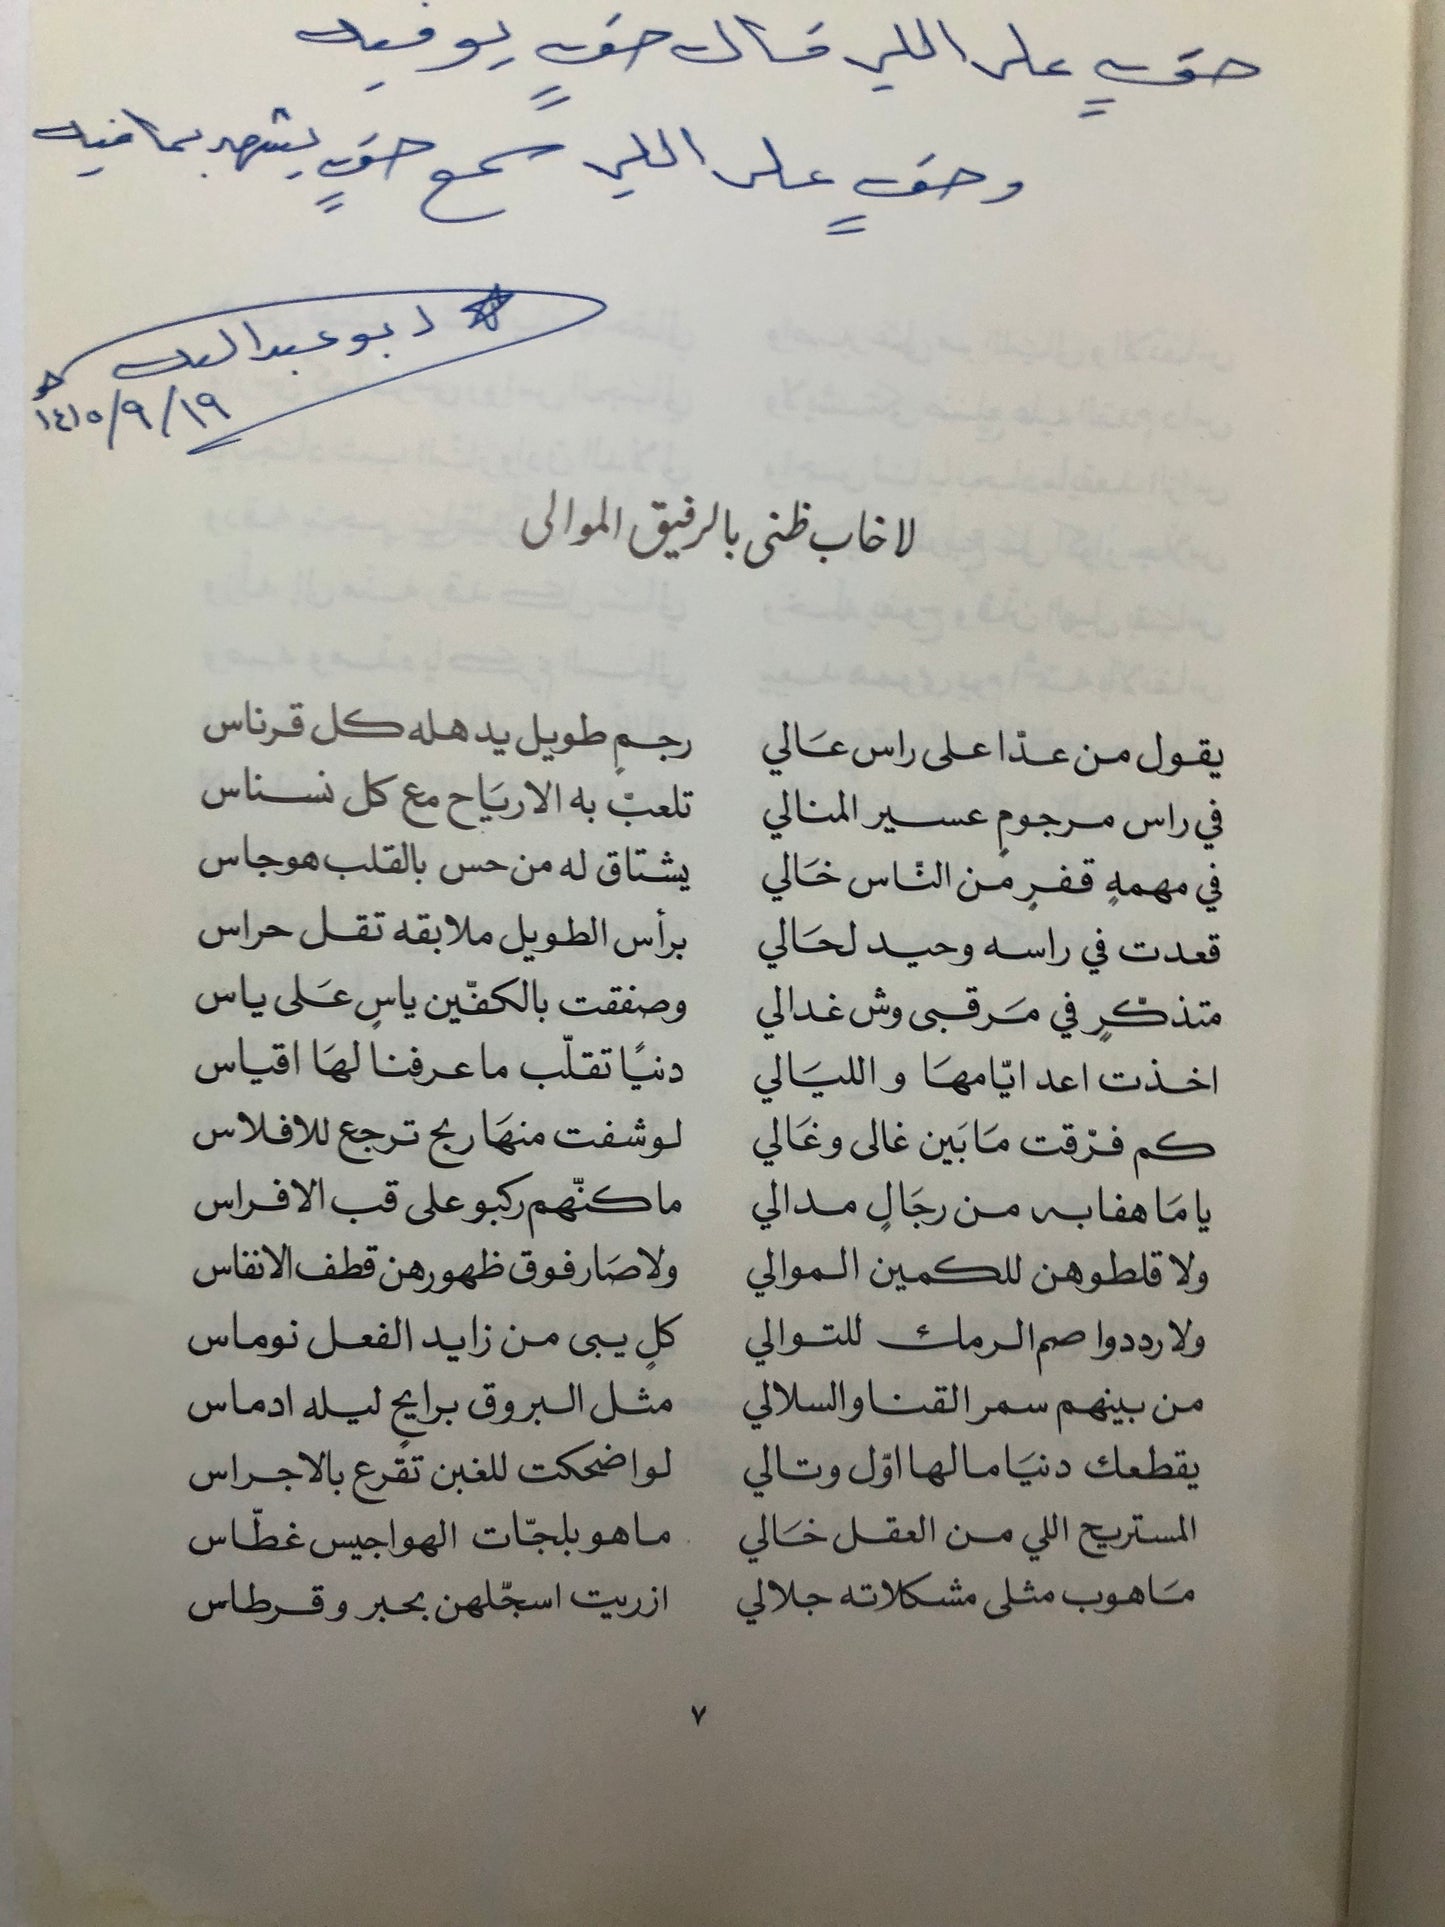 حقٍ على اللي قال حقٍ يوفيه
وحقٍ على اللي سمع حقٍ يشهد بما فيه
ابو عبدالله
١٤١٥/٩/١٩
لا خاب ظنى بالرفيق الموالى
يقول من عدّا على راس عَالي رجمٍ طويل يدهله كل قرناس
في راس مرجومٍ عسير المنالي تلعبْ به الاريَاح مع كل نسناس
في مهمهٍ قفرٍ من النّاس خَالي يشتاق له من حس بالقلب هوجاس
قعدت في راسه وحيد لحَالي برأس الطويل ملابقه تقل حراس
متذكْرٍ في مَرقبى وش غدالي وصفقت بالكفّين ياسٍ عَلى ياس
اخذت اعد ايّامهَا والليَالي دنيًا تقلّب ما عرفنا لهَا اقياس
كم فرّقت مَا بَين غالى وغَالي لو شفت منهَا ربح ترجع للافلاس
يا مَا هفا به من رجَالٍ مدالي ما كنّهم ركبو على قب الافراس
ولا قلطوهن للكمين الموالي ولا صَار فوق ظهورهن قطف الانفاس
ولا رددوا صم الرمك للتوالي كلٍ يبى من زايد الفعل نوماس
من بينهم سمر القنا والسلالي مثل البروق برايحٍ ليله ادماس
يقطعك دنيَا مالها اوّل وتالي لو اضحكت للغبن تقْرع بالاجراس
المستريح اللي من العقل خَالي ما هو بلجّات الهواجيس غطّاس
مَا هوب مثلى مشكلاته جلالي ازريت اسجّلهن بحبر وقرطاس
٧